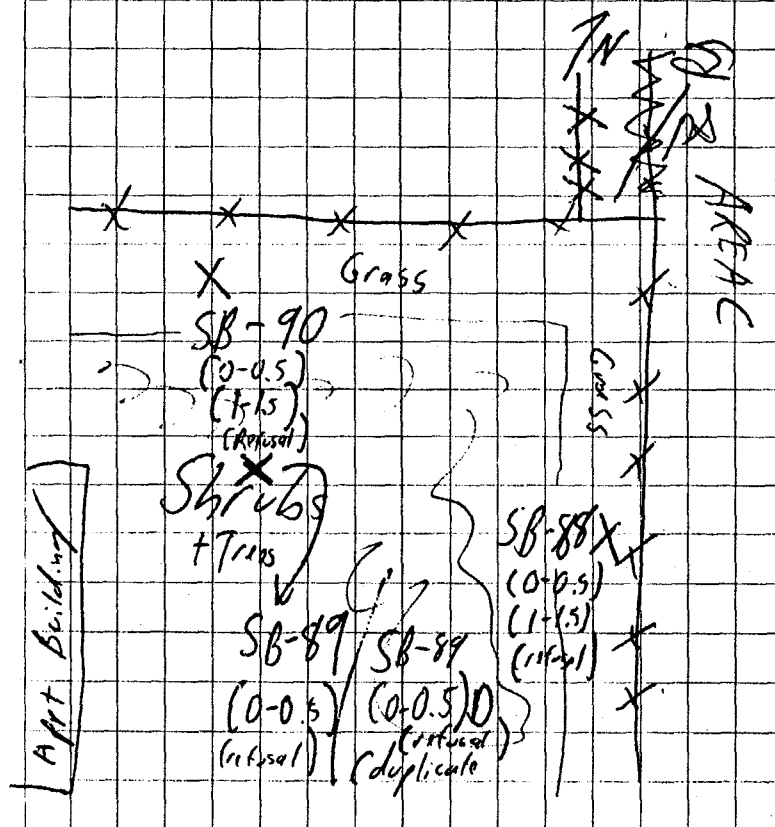 N
AREA C
Grass
SB-90
(0-0.5)
(1-1.5)
(Refusal)
Grass
Shrubs
+ Trees
SB-88
(0-0.5)
(1-1.5)
(refusal)
SB-89
(0-0.5)
(refusal)
SB-89
(0-0.5)D
(refusal)
(duplicate
Appt Building